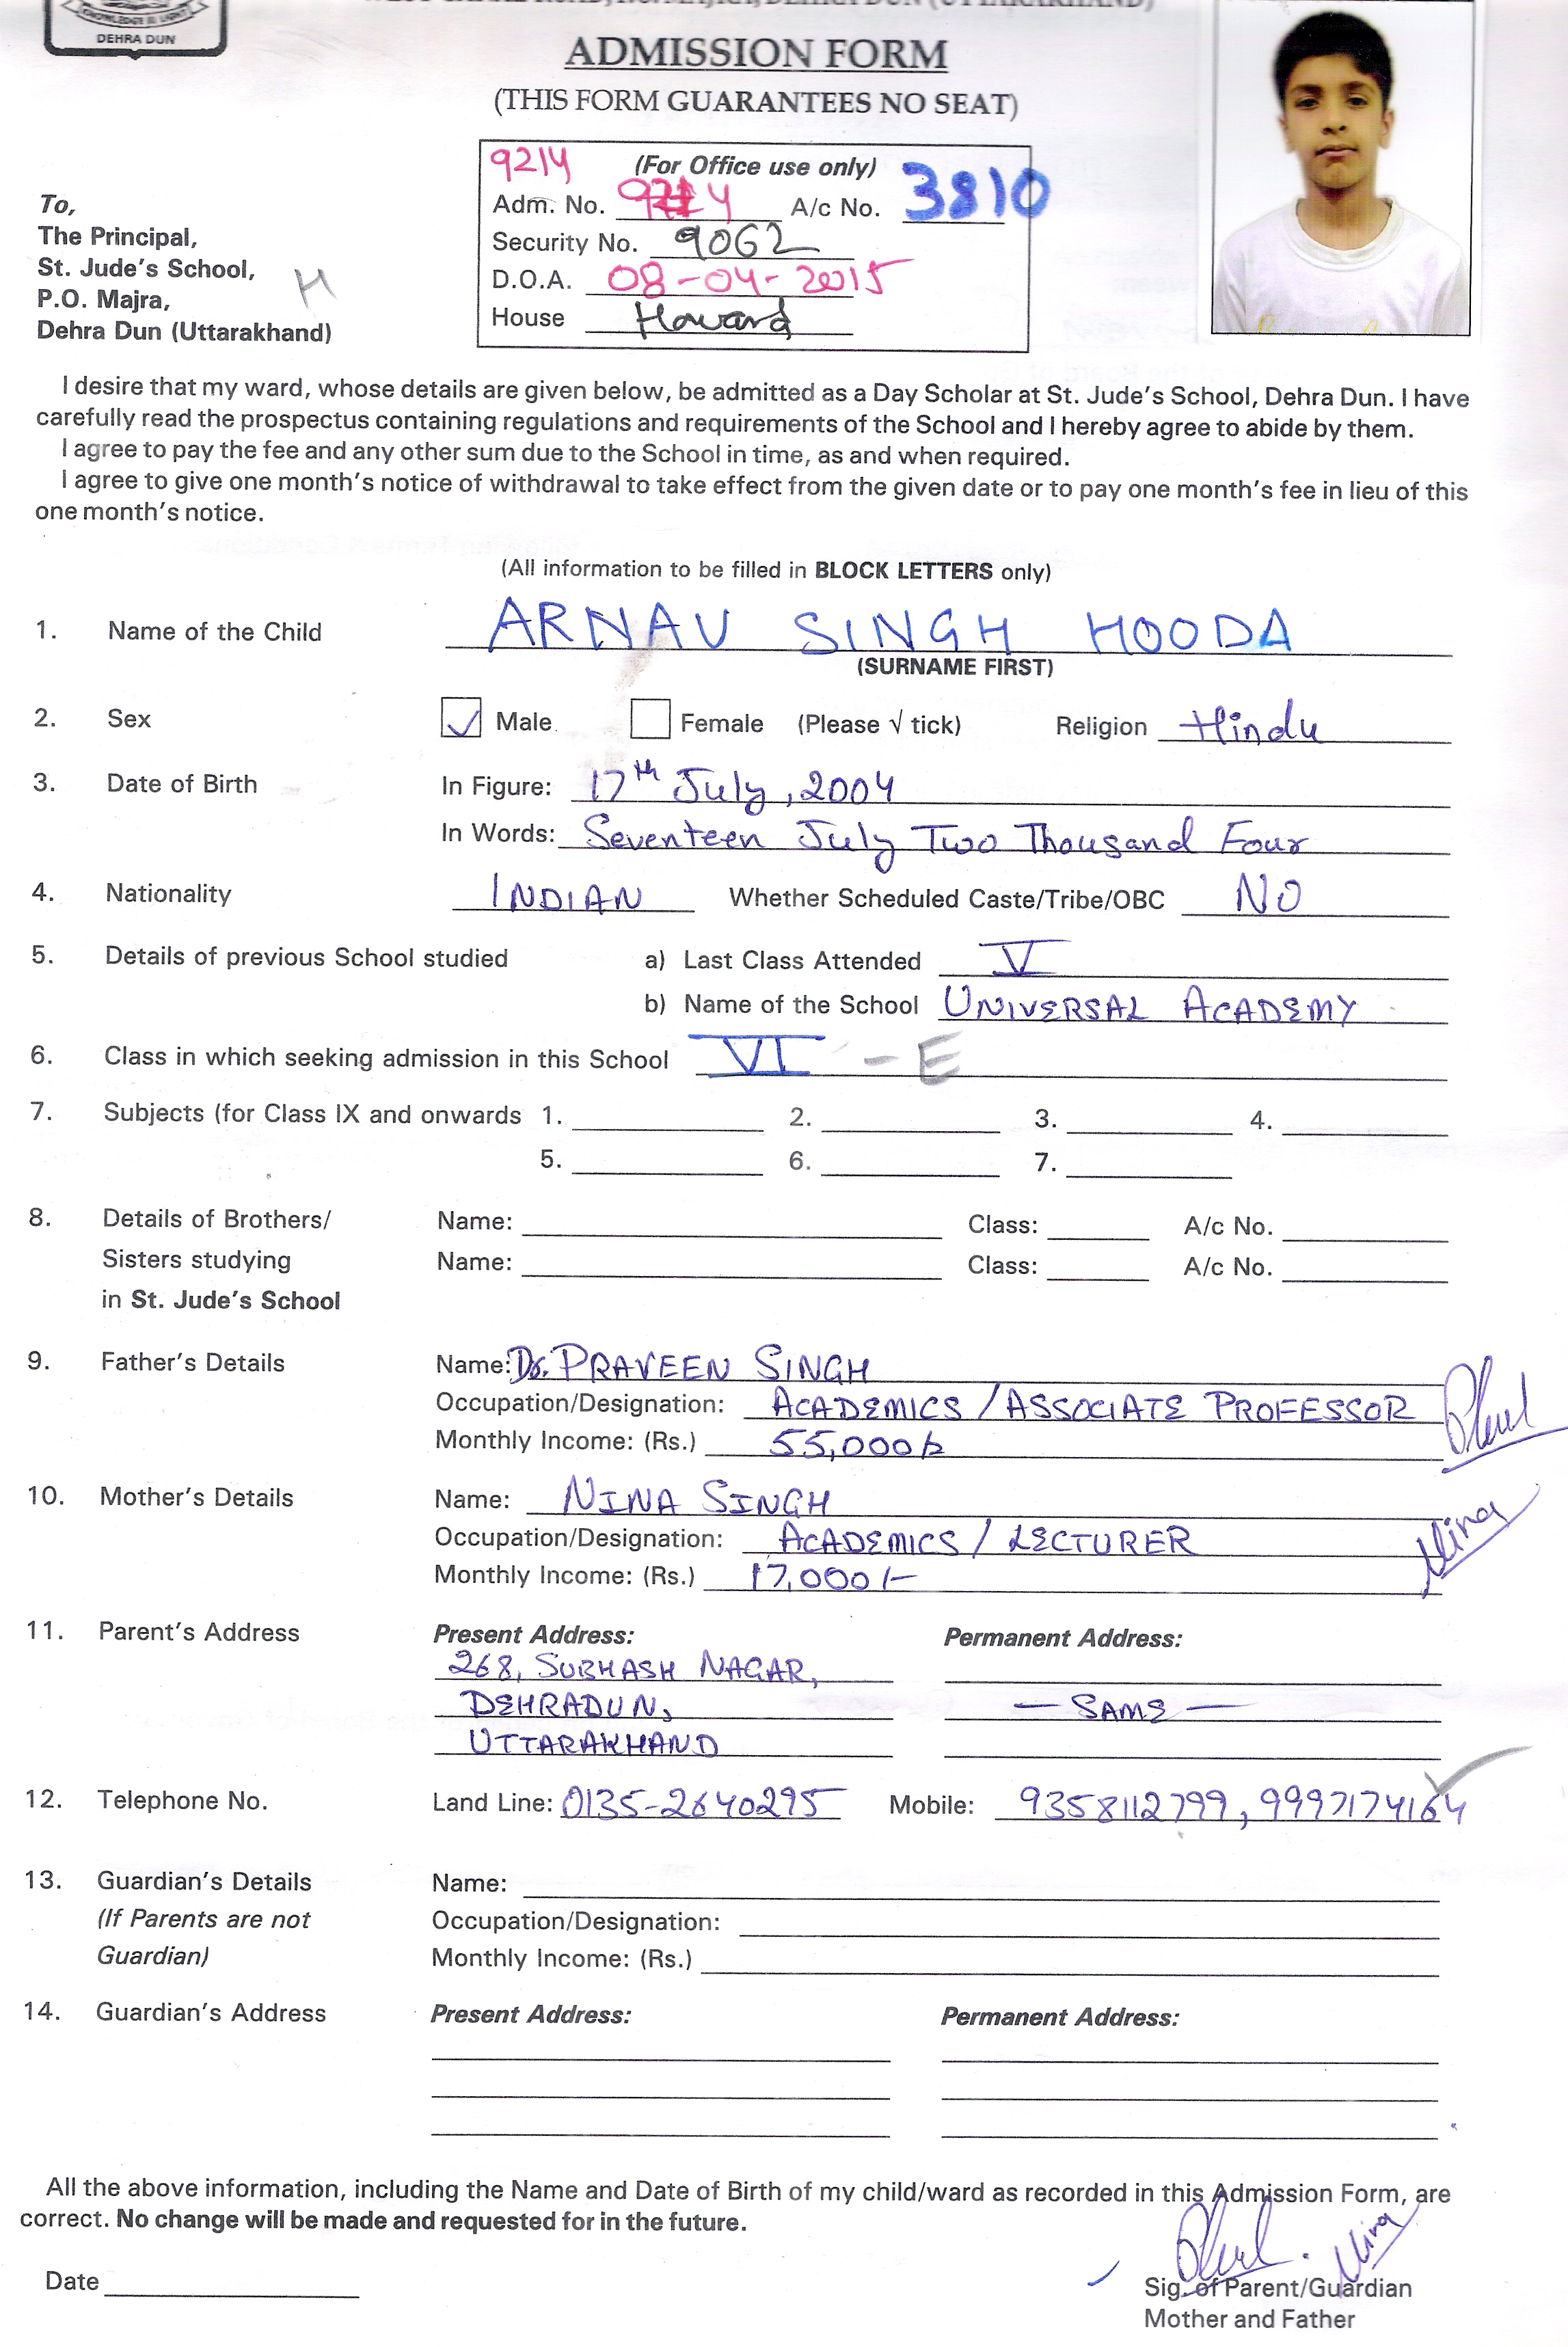 KNOWLEDGE IS LIGHT
DEHRA DUN
ADMISSION FORM
(THIS FORM GUARANTEES NO SEAT)
9214 (For Office use only)
Adm. No. 9214 A/c No. 3810
Security No. 9062
D.O.A. 08-04-2015
House Howard
To,
The Principal,
St. Jude's School,
P.O. Majra,
Dehra Dun (Uttarakhand)
H
I desire that my ward, whose details are given below, be admitted as a Day Scholar at St. Jude's School, Dehra Dun. I have
carefully read the prospectus containing regulations and requirements of the School and I hereby agree to abide by them.
I agree to pay the fee and any other sum due to the School in time, as and when required.
I agree to give one month's notice of withdrawal to take effect from the given date or to pay one month's fee in lieu of this
one month's notice.
(All information to be filled in BLOCK LETTERS only)
1. Name of the Child ARNAV SINGH HOODA
(SURNAME FIRST)
2. Sex ✓ Male Female (Please √ tick) Religion Hindu
3. Date of Birth In Figure: 17th July, 2004
In Words: Seventeen July Two Thousand Four
4. Nationality INDIAN Whether Scheduled Caste/Tribe/OBC NO
5. Details of previous School studied a) Last Class Attended V
b) Name of the School UNIVERSAL ACADEMY
6. Class in which seeking admission in this School VI - E
7. Subjects (for Class IX and onwards 1. 2. 3. 4.
5. 6. 7.
8. Details of Brothers/ Name: Class: A/c No.
Sisters studying Name: Class: A/c No.
in St. Jude's School
9. Father's Details Name: Dr. PRAVEEN SINGH
Occupation/Designation: ACADEMICS / ASSOCIATE PROFESSOR
Monthly Income: (Rs.) 55,000/-
10. Mother's Details Name: NINA SINGH
Occupation/Designation: ACADEMICS / LECTURER
Monthly Income: (Rs.) 17,000/-
Nina
11. Parent's Address Present Address: Permanent Address:
268, SUBHASH NAGAR,
DEHRADUN, — SAME —
UTTARAKHAND
12. Telephone No. Land Line: 0135-2640295 Mobile: 9358112799, 9997174164
13. Guardian's Details Name:
(If Parents are not Occupation/Designation:
Guardian) Monthly Income: (Rs.)
14. Guardian's Address Present Address: Permanent Address:
All the above information, including the Name and Date of Birth of my child/ward as recorded in this Admission Form, are
correct. No change will be made and requested for in the future.
Nina
Date Sig. of Parent/Guardian
Mother and Father